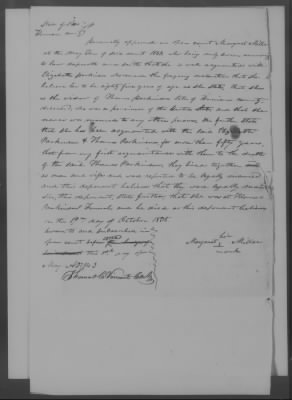 State of
county
Personally appeared in open court Margaret Miller
at the May Term of said court 1843, who being duly sworn according
to law deposeth and saith that she is well acquainted with
Elizabeth Parkison declarant the foregoing declaration that she
believes her to be eighty five years of age as she states, that she
is the widow of Thomas Parkison late of county
deceased, who was a pensioner of the United States and that she
never was married to any other person. She further states
that she has been acquainted with the said Elizabeth
Parkison & Thomas Parkison for more than fifty years,
that from my first acquaintance with them to the death
of the said Thomas Parkison, they lived together
as man and wife and was reputed to be legally married
and this deponent believes that they were legally married
this deponent states further that she was at Thomas
Parkison Funeral, and he died as this deponent believes
on the day of October 18
Sworn to and subscribed in
open court before
this day of
May AD 1843
her
Margaret X Miller
mark
Clerk